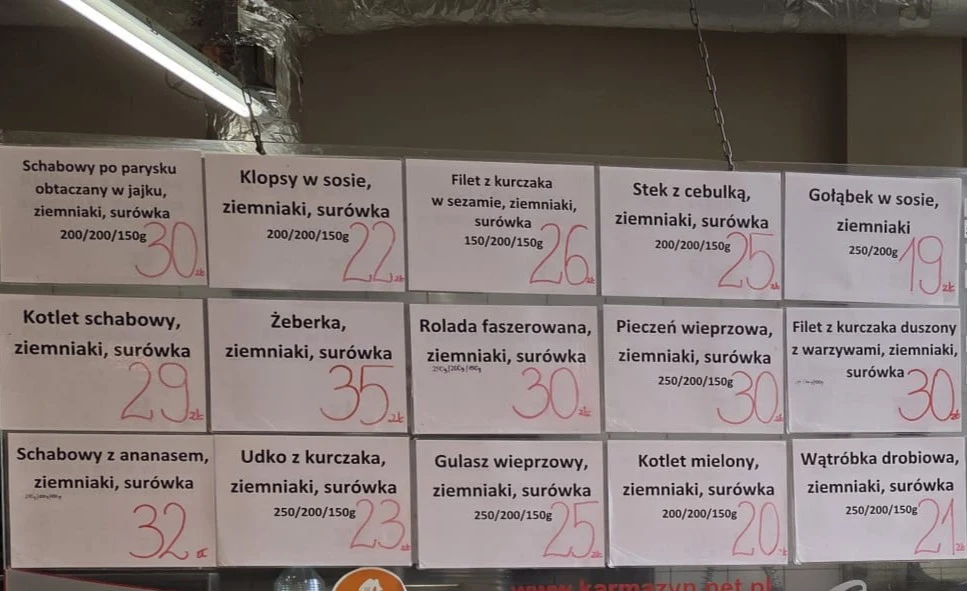 Schabowy po parysku
obtaczany w jajku,
ziemniaki, surówka
200/200/150g 30 zł
Klopsy w sosie,
ziemniaki, surówka
200/200/150g 22 zł
Filet z kurczaka
w sezamie, ziemniaki,
surówka
150/200/150g 26 zł
Stek z cebulką,
ziemniaki, surówka
200/200/150g 25 zł
Gołąbek w sosie,
ziemniaki
250/200g 19 zł
Kotlet schabowy,
ziemniaki, surówka
29 zł
Żeberka,
ziemniaki, surówka
35 zł
Rolada faszerowana,
ziemniaki, surówka
250g/200g/150g
30 zł
Pieczeń wieprzowa,
ziemniaki, surówka
250/200/150g 30 zł
Filet z kurczaka duszony
z warzywami, ziemniaki,
surówka
30 zł
Schabowy z ananasem,
ziemniaki, surówka
32 zł
Udko z kurczaka,
ziemniaki, surówka
250/200/150g 23 zł
Gulasz wieprzowy,
ziemniaki, surówka
250/200/150g 25 zł
Kotlet mielony,
ziemniaki, surówka
200/200/150g 20 zł
Wątróbka drobiowa,
ziemniaki, surówka
250/200/150g 21 zł
www.karmazyn.net.pl